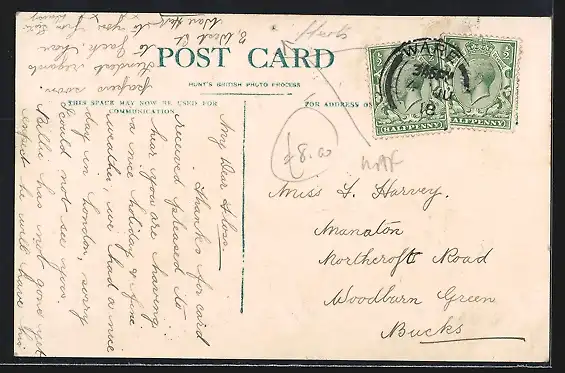 POST CARD
HUNT'S BRITISH PHOTO PROCESS
THIS SPACE MAY NOW BE USED FOR
COMMUNICATION
FOR ADDRESS
Herts
WARE
18
HALFPENNY
HALFPENNY
£8.00
WAR
My Dear
Thanks for card
received pleased to
hear you are having
a nice holiday & fine
weather, we had a nice
day in London, sorry
could not see you.
has not gone yet
expect he will have his
papers soon.
kindest regards
to
to you from
Miss F. Harvey.
Manaton
Northcroft Road
Woodburn Green
Bucks